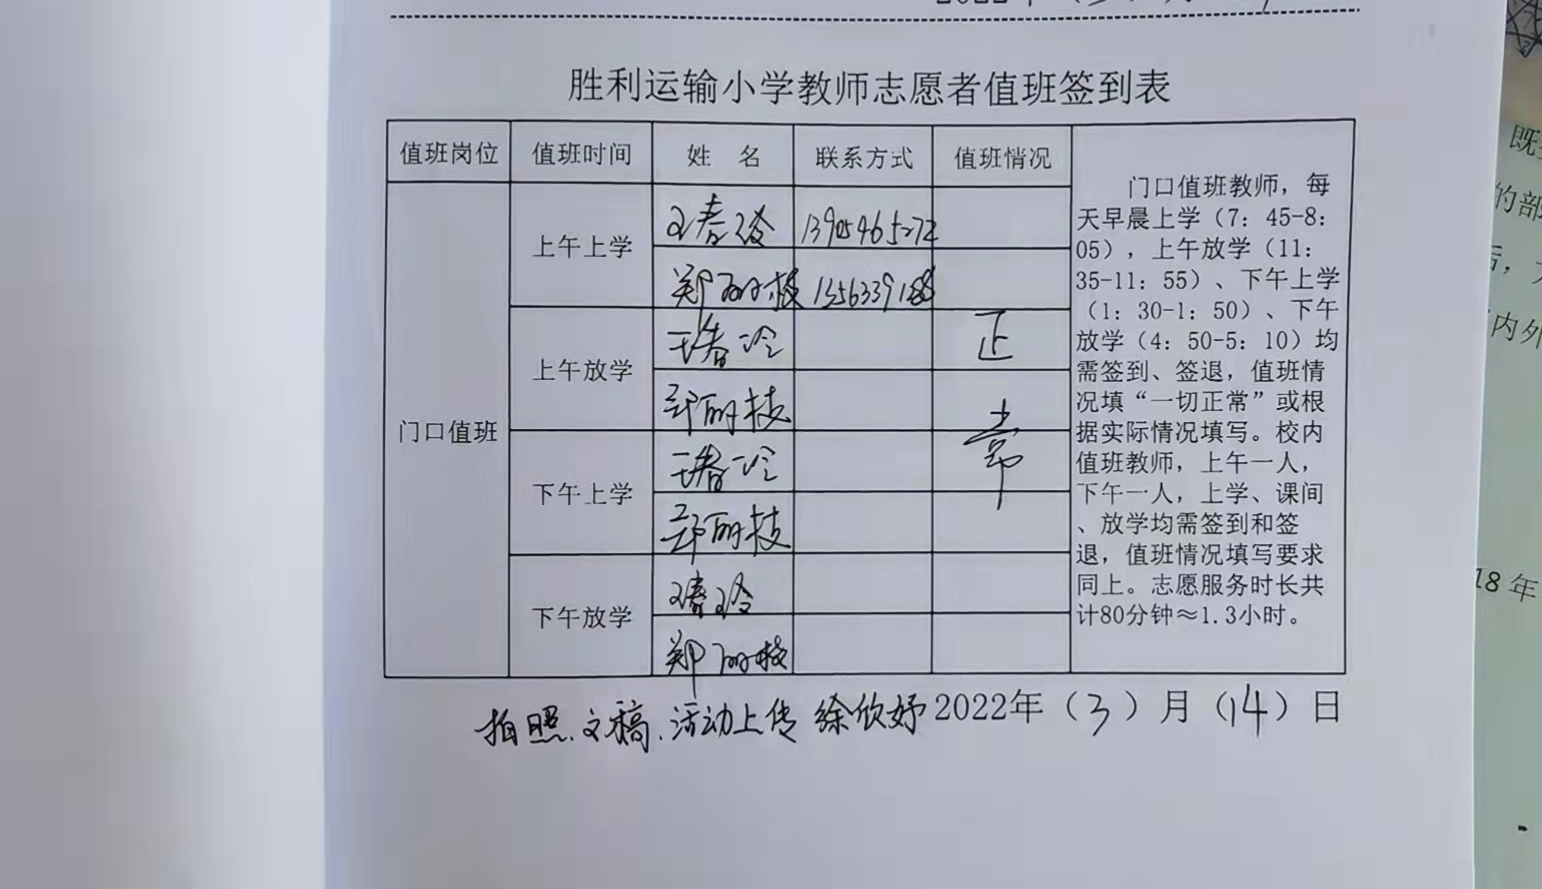 胜利运输小学教师志愿者值班签到表
值班岗位 值班时间 姓 名 联系方式 值班情况
门口值班教师，每
天早晨上学（7：45-8：
05），上午放学（11：
35-11：55）、下午上学
（1：30-1：50）、下午
放学（4：50-5：10）均
需签到、签退，值班情
况填“一切正常”或根
据实际情况填写。校内
值班教师，上午一人，
下午一人，上学、课间
、放学均需签到和签
退，值班情况填写要求
同上。志愿服务时长共
计80分钟≈1.3小时。
门口值班
上午上学
王春玲 13905465272
郑丽枝
上午放学
王春玲
郑丽枝
正
常
下午上学
王春玲
郑丽枝
下午放学
王春玲
郑丽枝
拍照、文稿、活动上传 徐欣妤 2022年（3）月（14）日
既
的部
内外
18年